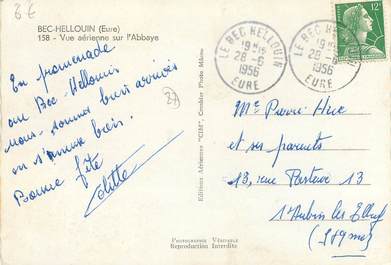 8€
BEC-HELLOUIN (Eure)
158 - Vue aérienne sur l'Abbaye
En promenade
au Bec-Hellouin
nous sommes bien arrivés
on s'amuse bien.
Bonne fête
Colette
27
Editions Aériennes "CIM", Combier Photo Mâcon
PHOTOGRAPHIE VÉRITABLE
Reproduction Interdite
LE BEC HELLOUIN
19H15
28-6
1956
EURE
LE BEC HELLOUIN
19H15
28-6
1956
EURE
12F
Mr Pierre
et ses parents
13, rue Pasteur 13
St Aubin les Elbeuf
(S/Me)